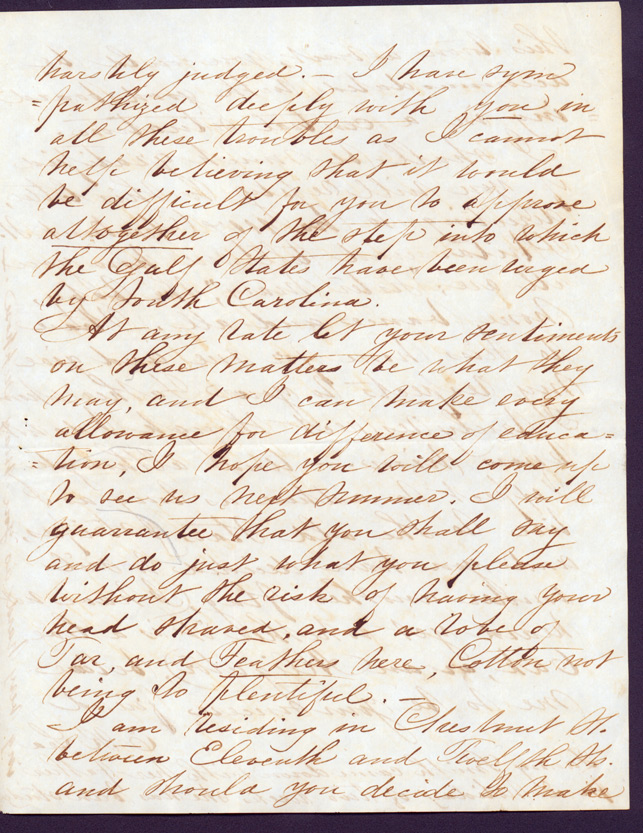 harshly judged. — I have sym
=pathized deeply with you in
all these troubles as I cannot
help believing that it would
be difficult for you to approve
altogether of the step into which
the Gulf States have been urged
by South Carolina.
At any rate let your sentiments
on these matters be what they
may, and I can make every
allowance for difference of educa=
=tion, I hope you will come up
to see us next summer. I will
guarrantee that you shall say
and do just what you please
without the risk of having your
head shaved, and a robe of
Tar, and Feathers here, Cotton not
being so plentiful. —
I am residing in Chestnut St.
between Eleventh and Twelfth Sts.
and should you decide to make